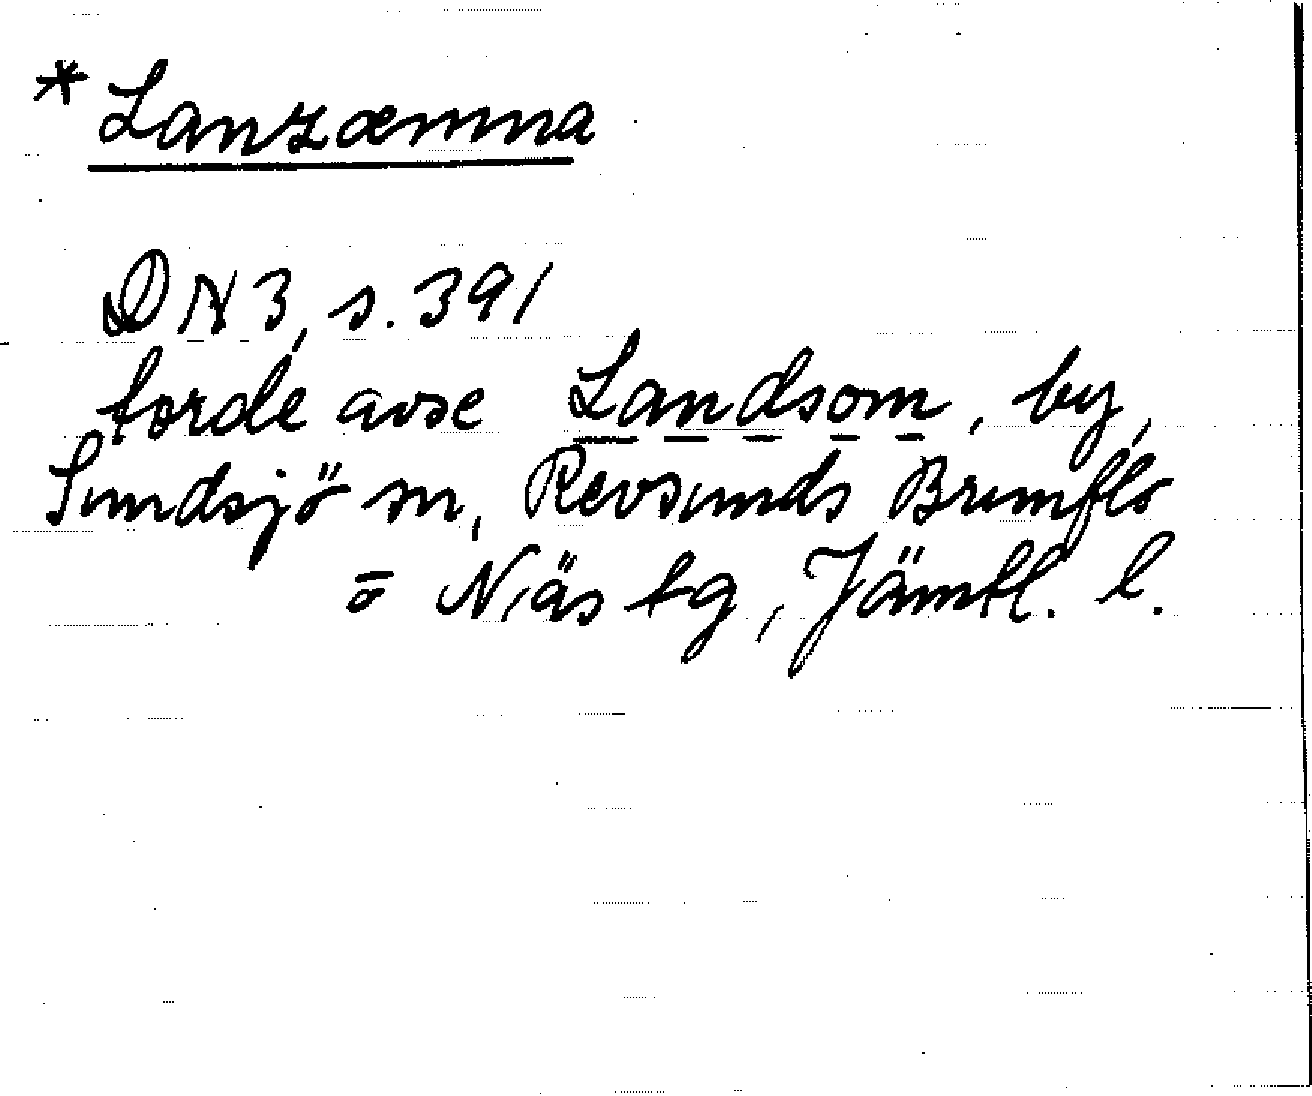 * Lanzæmna
DN 3, s. 391
torde avse Landsom, by,
Sundsjö sn, Revsunds Brunflo
o Näs tg, Jämtl. l.